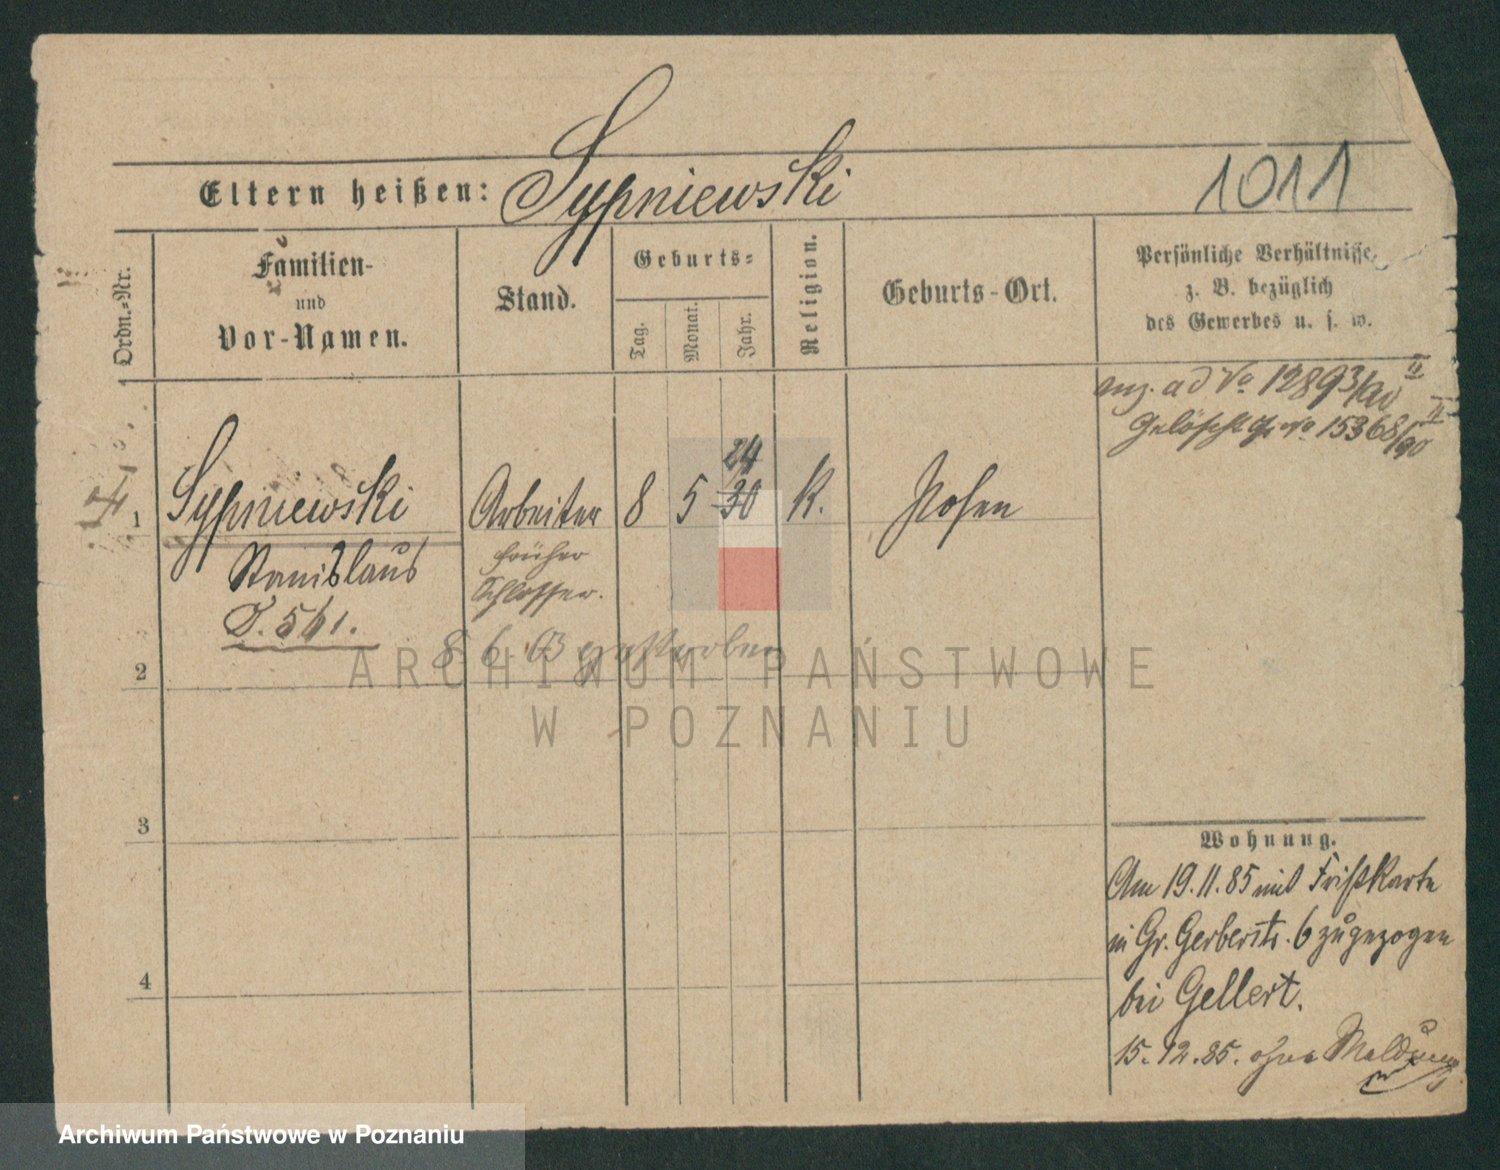 Eltern heißen: Sypniewski
1011
Ordn.-Nr.
Familien-
und
Vor-Namen.
Stand.
Geburts-
Tag.
Monat.
Jahr.
Religion.
Geburts-Ort.
Persönliche Verhältnisse,
z. B. bezüglich
des Gewerbes u. s. w.
ad No 12893/90 II
Gelöscht No 15368/90 II
24
1 Sypniewski Arbeiter 8 5 30 K. Posen
Stanislaus
früher
Schlosser.
J. 561.
8 6 03 gestorben
2
ARCHIWUM PAŃSTWOWE
W POZNANIU
3
4
Wohnung.
Am 19.11.85 mit Fristkarte
in Gr. Gerberstr. 6 zugezogen
bei Gellert.
15.12.85. ohne Meldung
Archiwum Państwowe w Poznaniu